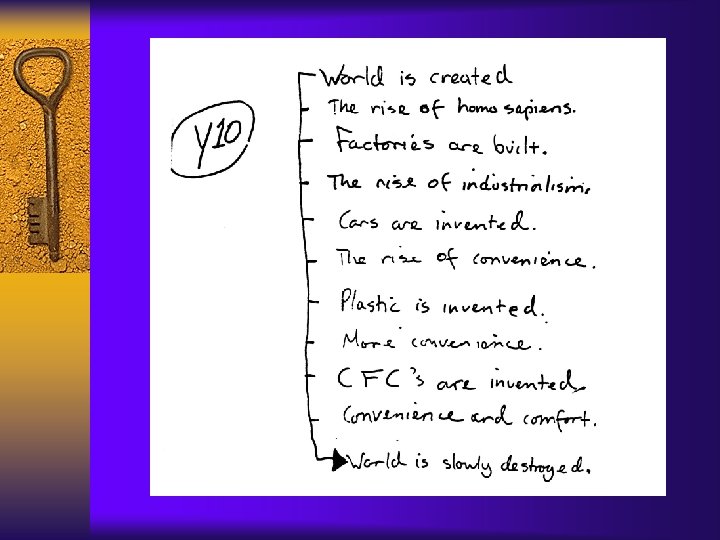 World is created
The rise of homo sapiens.
Y10
Factories are built.
The rise of industrialism.
Cars are invented.
The rise of convenience.
Plastic is invented.
More convenience.
CFC's are invented.
Convenience and comfort.
World is slowly destroyed.